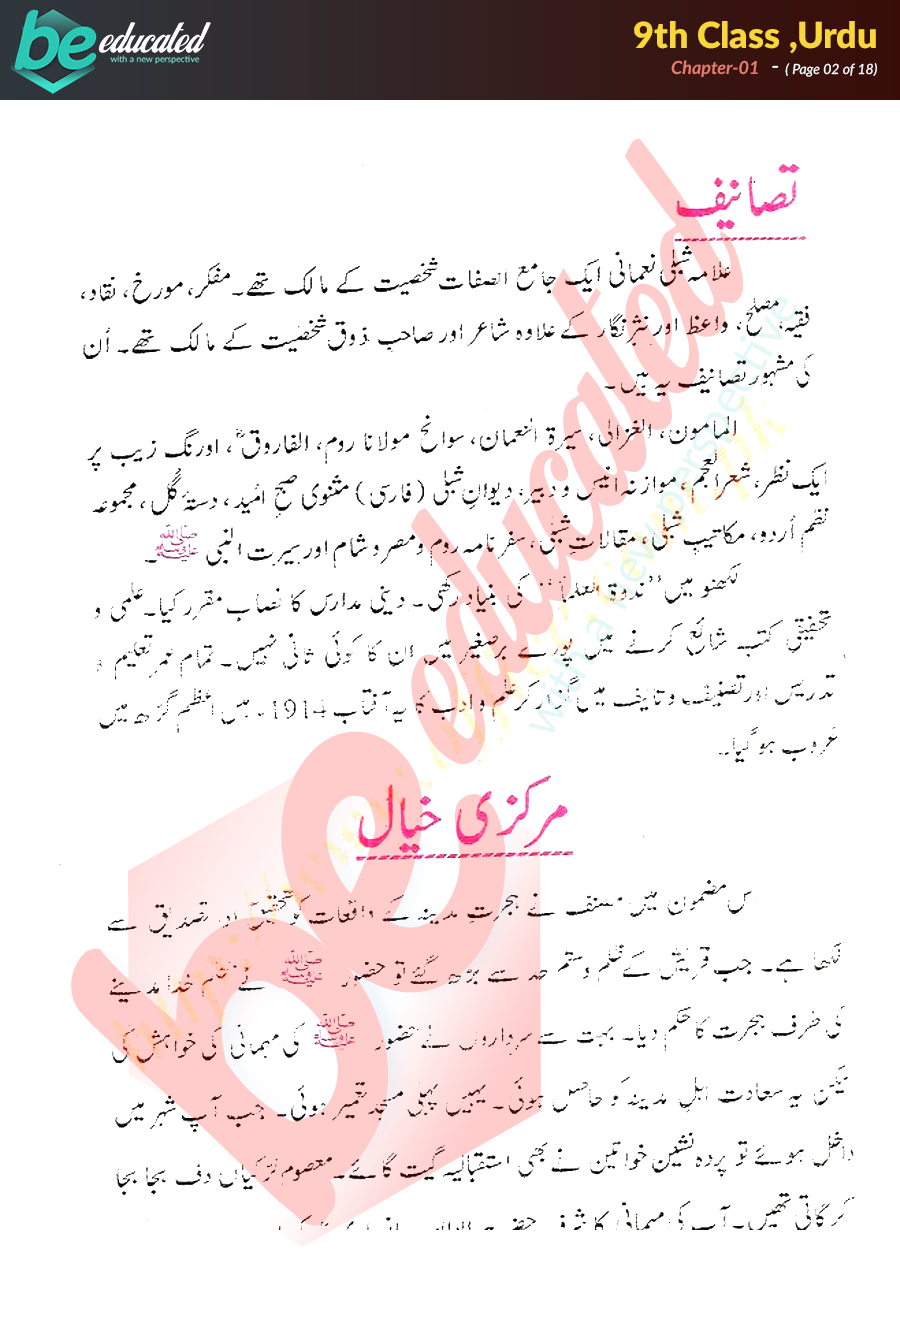 be educated
with a new perspective
9th Class ,Urdu
Chapter-01 - ( Page 02 of 18)
تصانیف
علامہ شبلی نعمانی ایک جامع الصفات شخصیت کے مالک تھے۔ مفکر، مورخ، نقاد،
فقیہ، مصلح، واعظ اور نثر نگار کے علاوہ شاعر اور صاحب ذوق شخصیت کے مالک تھے۔ اُن
کی مشہور تصانیف یہ ہیں۔
المامون، الغزالی، سیرۃ النعمان، سوانح مولانا روم، الفاروقؓ، اورنگ زیب پر
ایک نظر، شعر العجم، موازنہ انیس و دبیر، دیوانِ شبلی (فارسی) مثنوی صبح امید، دستۂ گل، مجموعہ
نظم اُردو، مکاتیبِ شبلی، مقالاتِ شبلی، سفر نامہ روم و مصر و شام اور سیرت النبی ﷺ۔
لکھنو میں ”ندوۃ العلما“ کی بنیاد رکھی۔ دینی مدارس کا نصاب مقرر کیا۔ علمی و
تحقیقی کتب شائع کرنے میں پورے برصغیر میں ان کا کوئی ثانی نہیں۔ تمام عمر تعلیم و
تدریس اور تصنیف و تالیف میں گزار کر علم و ادب کا یہ آفتاب 1914ء میں اعظم گڑھ میں
غروب ہو گیا۔
مرکزی خیال
س مضمون میں مصنف نے ہجرتِ مدینہ کے واقعات کو تحقیق اور تصدیق سے
لکھا ہے۔ جب قریش کے ظلم و ستم حد سے بڑھ گئے تو حضور ﷺ نے حکم خدا مدینے
کی طرف ہجرت کا حکم دیا۔ بہت سے سرداروں نے حضور ﷺ کی مہمانی کی خواہش کی
لیکن یہ سعادت اہلِ مدینہ کو حاصل ہوئی۔ یہیں پہلی مسجد تعمیر ہوئی۔ جب آپ شہر میں
داخل ہوئے تو پردہ نشین خواتین نے بھی استقبالیہ گیت گائے۔ معصوم لڑکیاں دف بجا بجا
کر گاتی تھیں۔ آپ کی مہمانی کا شرف